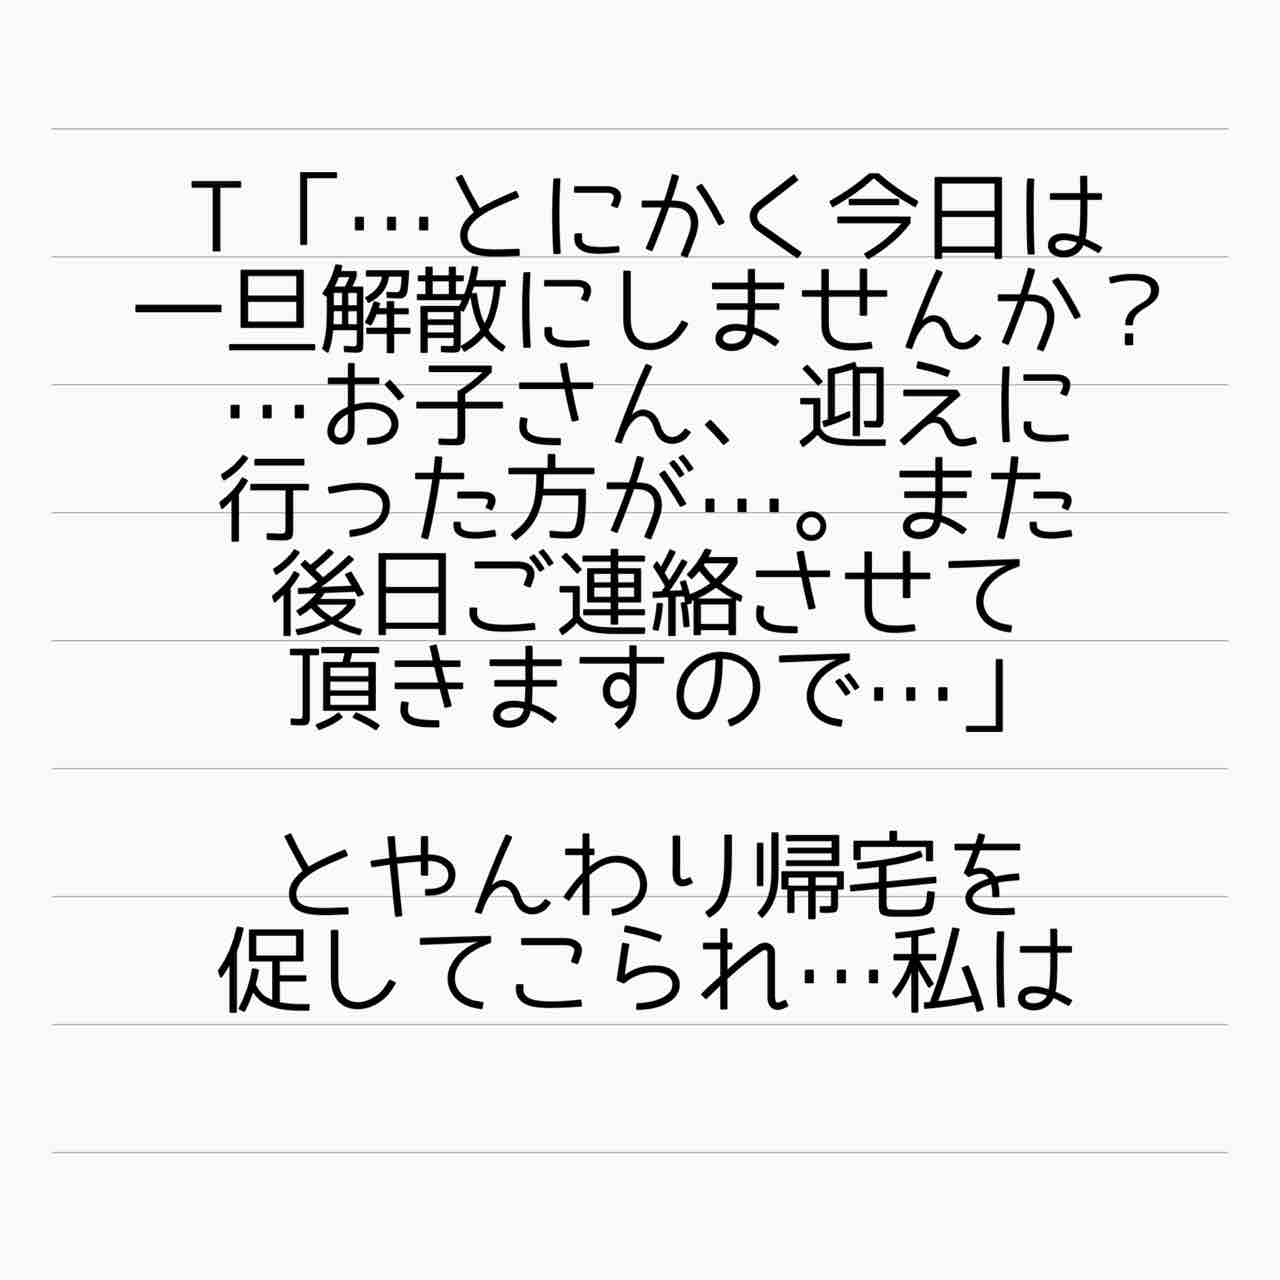 T「…とにかく今日は
一旦解散にしませんか？
…お子さん、迎えに
行った方が…。また
後日ご連絡させて
頂きますので…」
とやんわり帰宅を
促してこられ…私は